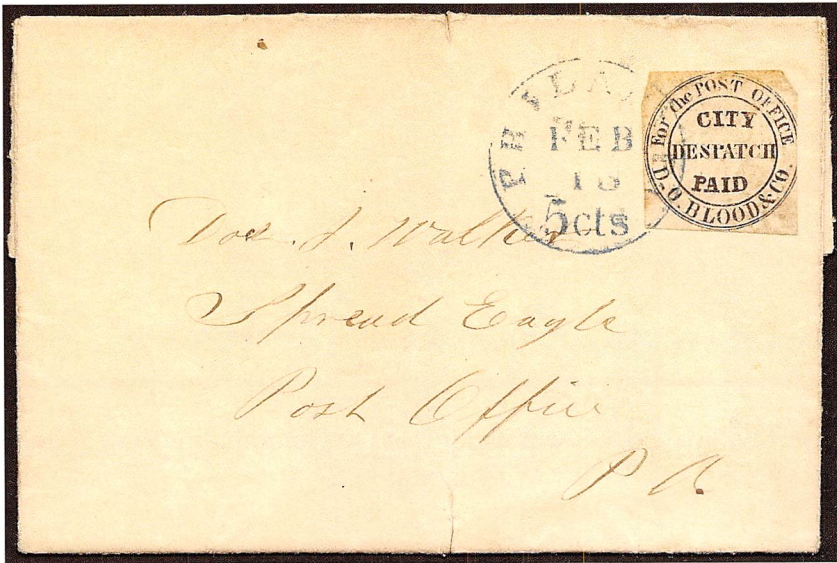 PHILAD
FEB
18
5cts
For the POST OFFICE
CITY
DESPATCH
PAID
D.O. BLOOD & CO.
J. Walker
Spread Eagle
Post Office
P A.